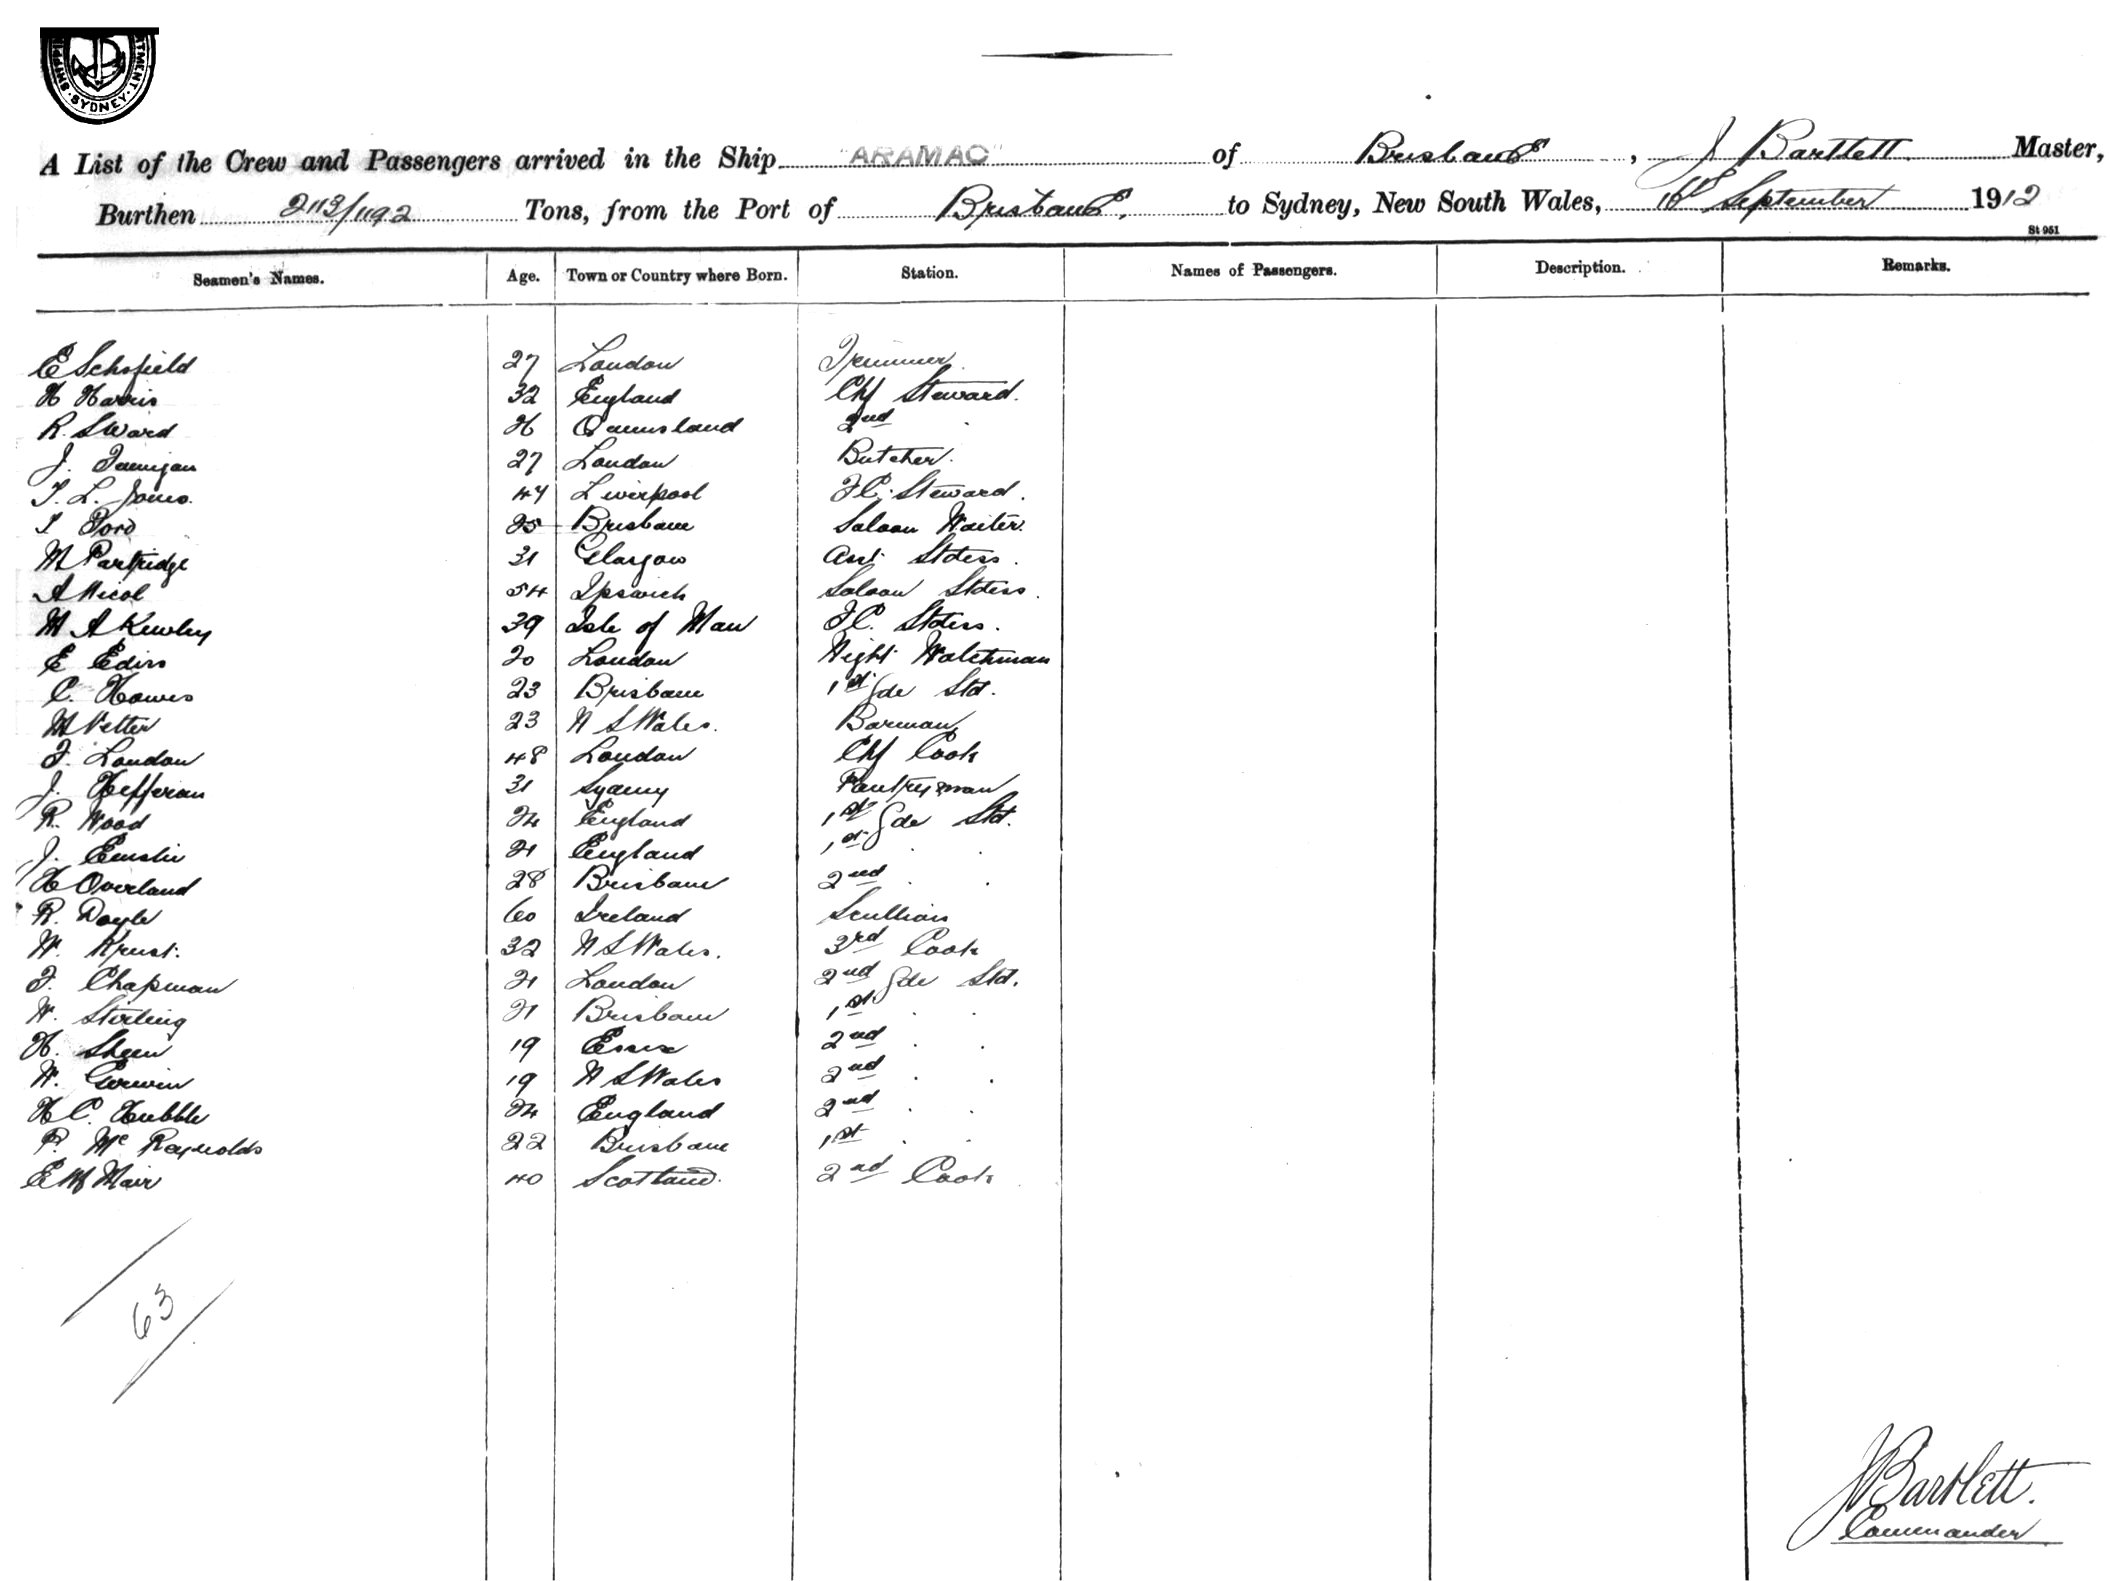 SHIPPING DEPARTMENT SYDNEY
A List of the Crew and Passengers arrived in the Ship "ARAMAC" of Brisbane, J Bartlett Master,
Burthen 2113/1192 Tons, from the Port of Brisbane, to Sydney, New South Wales, 16th September 1912
St 951
Seamen's Names. Age. Town or Country where Born. Station. Names of Passengers. Description. Remarks.
E Schofield 27 London Trimmer
H Harris 32 England Chf Steward.
R. S Ward 26 Queensland 2nd
J. 27 London Butcher.
T. L. Jones. 47 Liverpool F.C. Steward.
T Ford 25 Brisbane Saloon Waiter.
M Partridge 31 Glasgow Asst Stdess.
A Nicol 54 Ipswich Saloon Stdess.
M A Kewley 39 Isle of Man F.C. Stdess.
E 20 London Night Watchman
C. Hawes 23 Brisbane 1st Gde Std.
M Vetter 23 N S Wales. Barman
F. London 48 London Chf Cook
J. Hefferan 31 Sydney Pantryman
R. Wood 24 England 1st Gde Std.
J. Emslie 21 England 1st . .
H Overland 28 Brisbane 2nd . .
R. Doyle 60 Ireland Scullion
W. 32 N S Wales. 3rd Cook
F. Chapman 21 London 2nd Gde Std.
W. Stirling 21 Brisbane 1st . .
H. Sheen 19 Essex 2nd . .
W. 19 N S Wales 2nd . .
H C. Hubble 24 England 2nd . .
P. Mc Reynolds 22 Brisbane 1st . .
E W Mair 40 Scotland. 2nd Cook
63
J Bartlett.
Commander